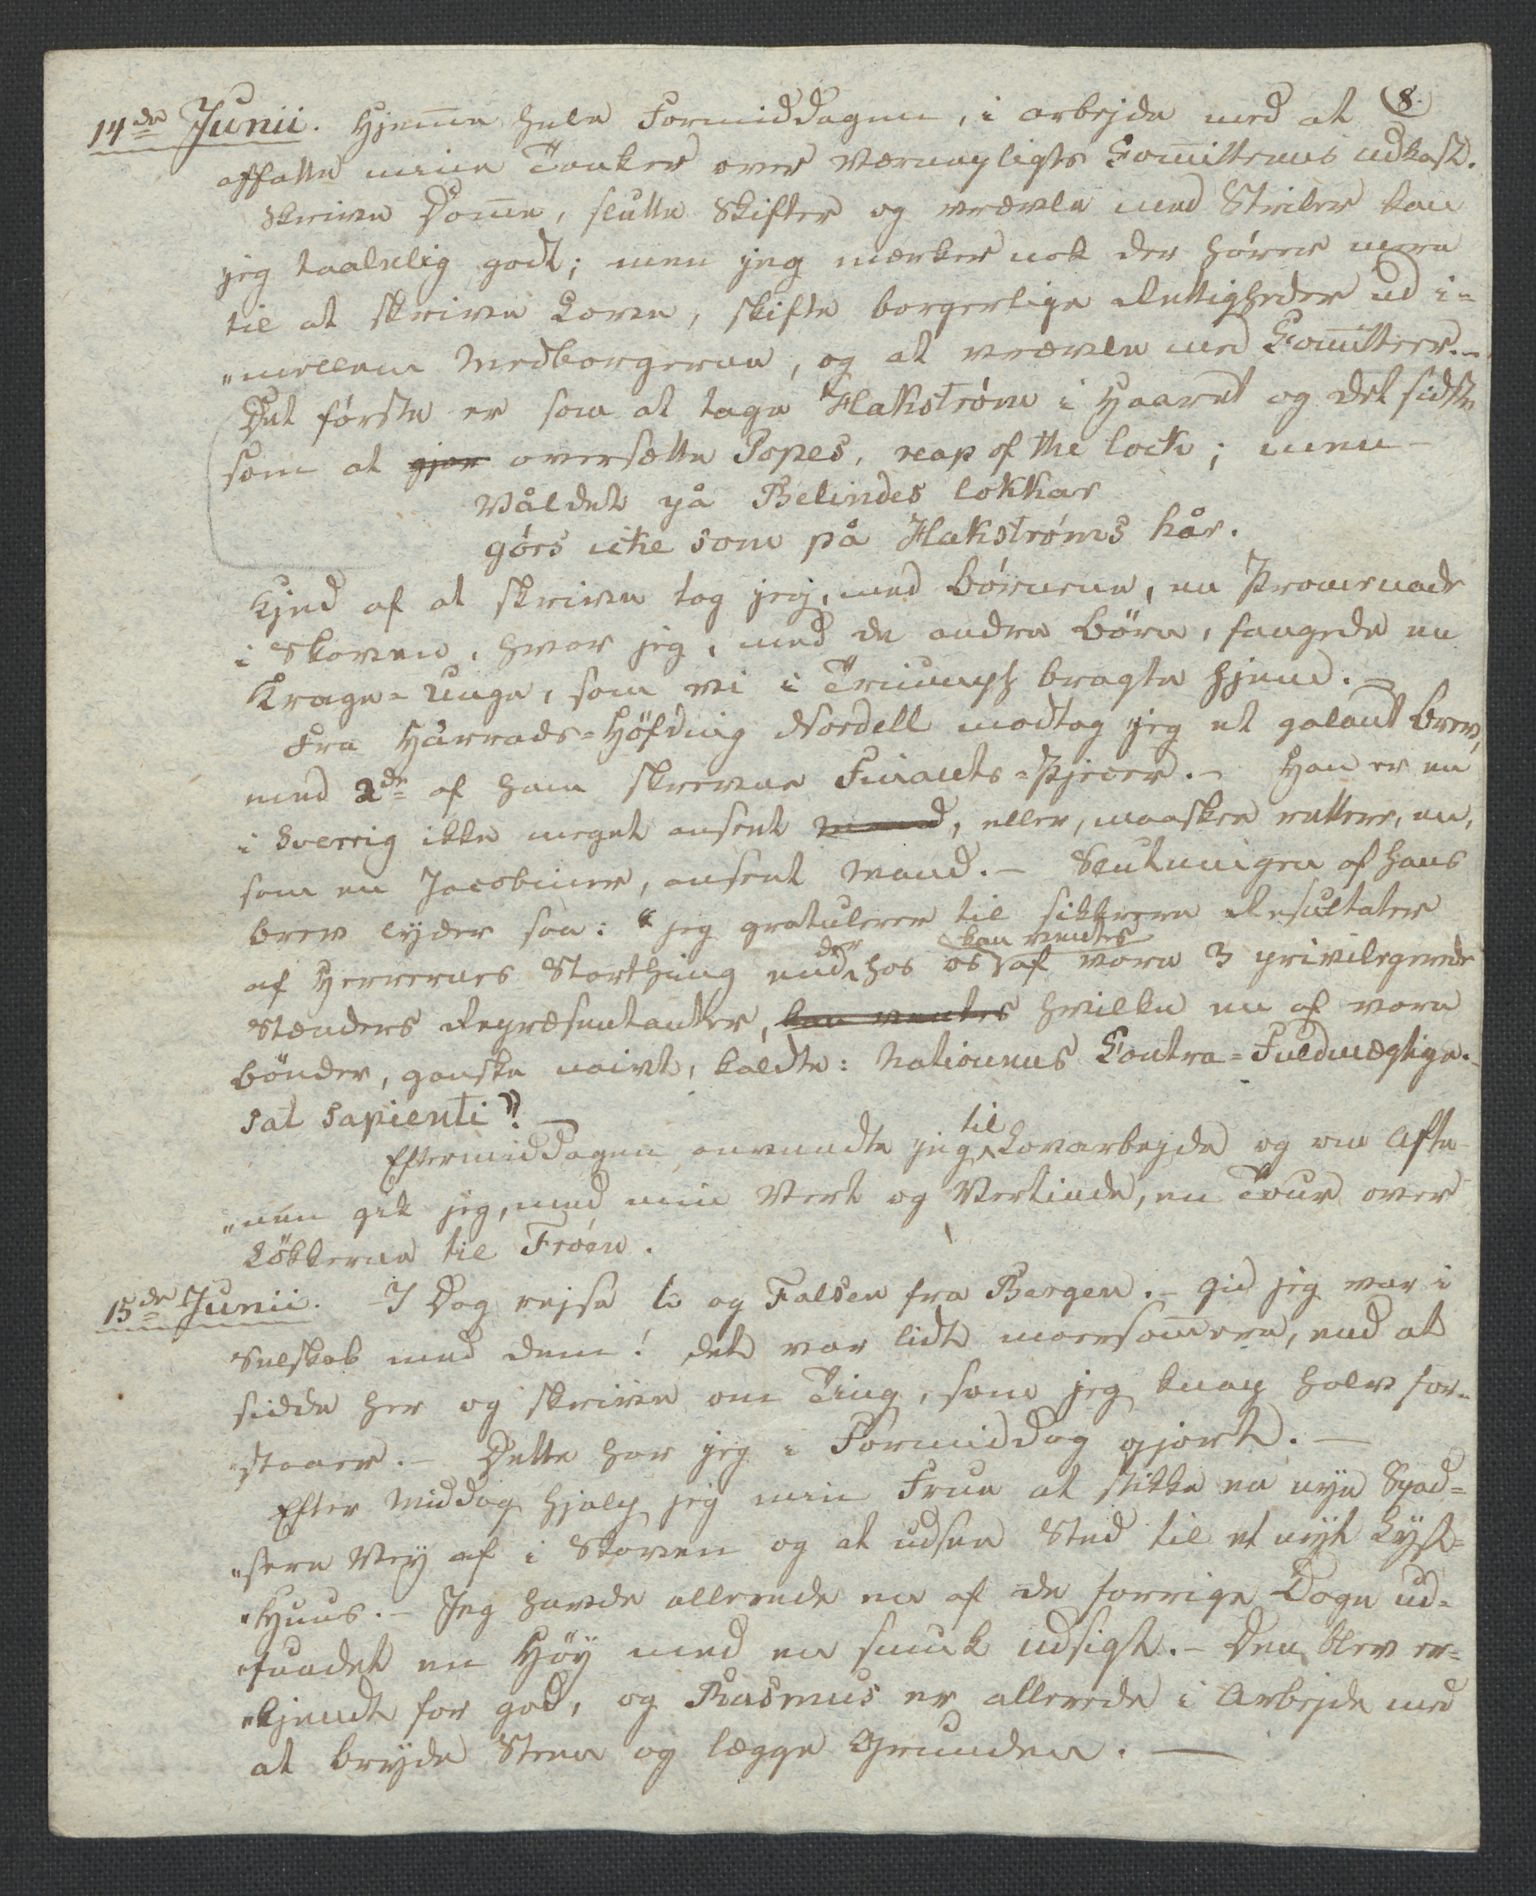 14de Junii. Hjem̅e hele Formiddagen, i arbejde med at (8.
affatte mine Tanker over Værnepligts Com̅itteens udkast.
Skrive Dom̅e, slutte Skifter og vrævle med Striler kan
jeg taalelig godt; men jeg mærker nok der hører mere
til at skrive Love, skifte borgerlige Rettigheder ud i-
„mellem Medborgerne, og at vrævle med Com̅itteer.-
Det første er som at tage Hakstrøm i Haaret og det sidste
som at gjør oversætte Popes, reap of the lock; men -
Våldet på Belindes lokkar
görs icke som på Hakstrøms hår.
Kjed af at skrive tog jeg, med Børnene, en Promenade
i Skoven, hvor jeg, med de andre Börn, fangede en
Krage-Unge, som vi i Triumph bragte hjem. -
Fra Härrads-Höfding Nordell modtog jeg et galant brev,
med 2de af ham skrevne Finants-Pjecer. - Han er en
i Sverrig ikke meget anseet Mand, eller, maaskee rettere, en,
som en Jacobiner, anseet Mand. - Slutningen af hans
brev lyder saa: "jeg gratulerer til sikkrere Resultater
af Herrernes Storthing end der hos os kan ventes af vore 3 privilegerede
Stænders Repræsentanter, kan ventes hvilke en af vore
bönder, ganske naivt, kaldte: Nationens Contra-Fuldmægtige.
sat sapienti". -
Eftermiddagen anvendte jeg til Lovarbejde og om Afte-
„nen gik jeg, med min Vert og Vertinde, en Tour over
Lökkerne til Frøen.
15de Junii. I Dag rejse L. og Falsen fra Bergen. - gid jeg var i
Selskab med dem! det var lidt moersom̅ere, end at
sidde her og skrive om Ting, som jeg knap halv for-
„staaer. - Dette har jeg i Formiddag gjort. -
Efter Middag hjalp jeg min Frue at stikke en nye Spad-
„sere Vej af i Skoven og at udsee Sted til et nyt Lyst-
„Huus. - Jeg havde allerede en af de forrige Dage ud-
„fundet en Höy med en smuk udsigt. - Den blev er-
„kjendt for god, og Rasmus er allerede i Arbejde med
at bryde Steen og lægge Grunden. -